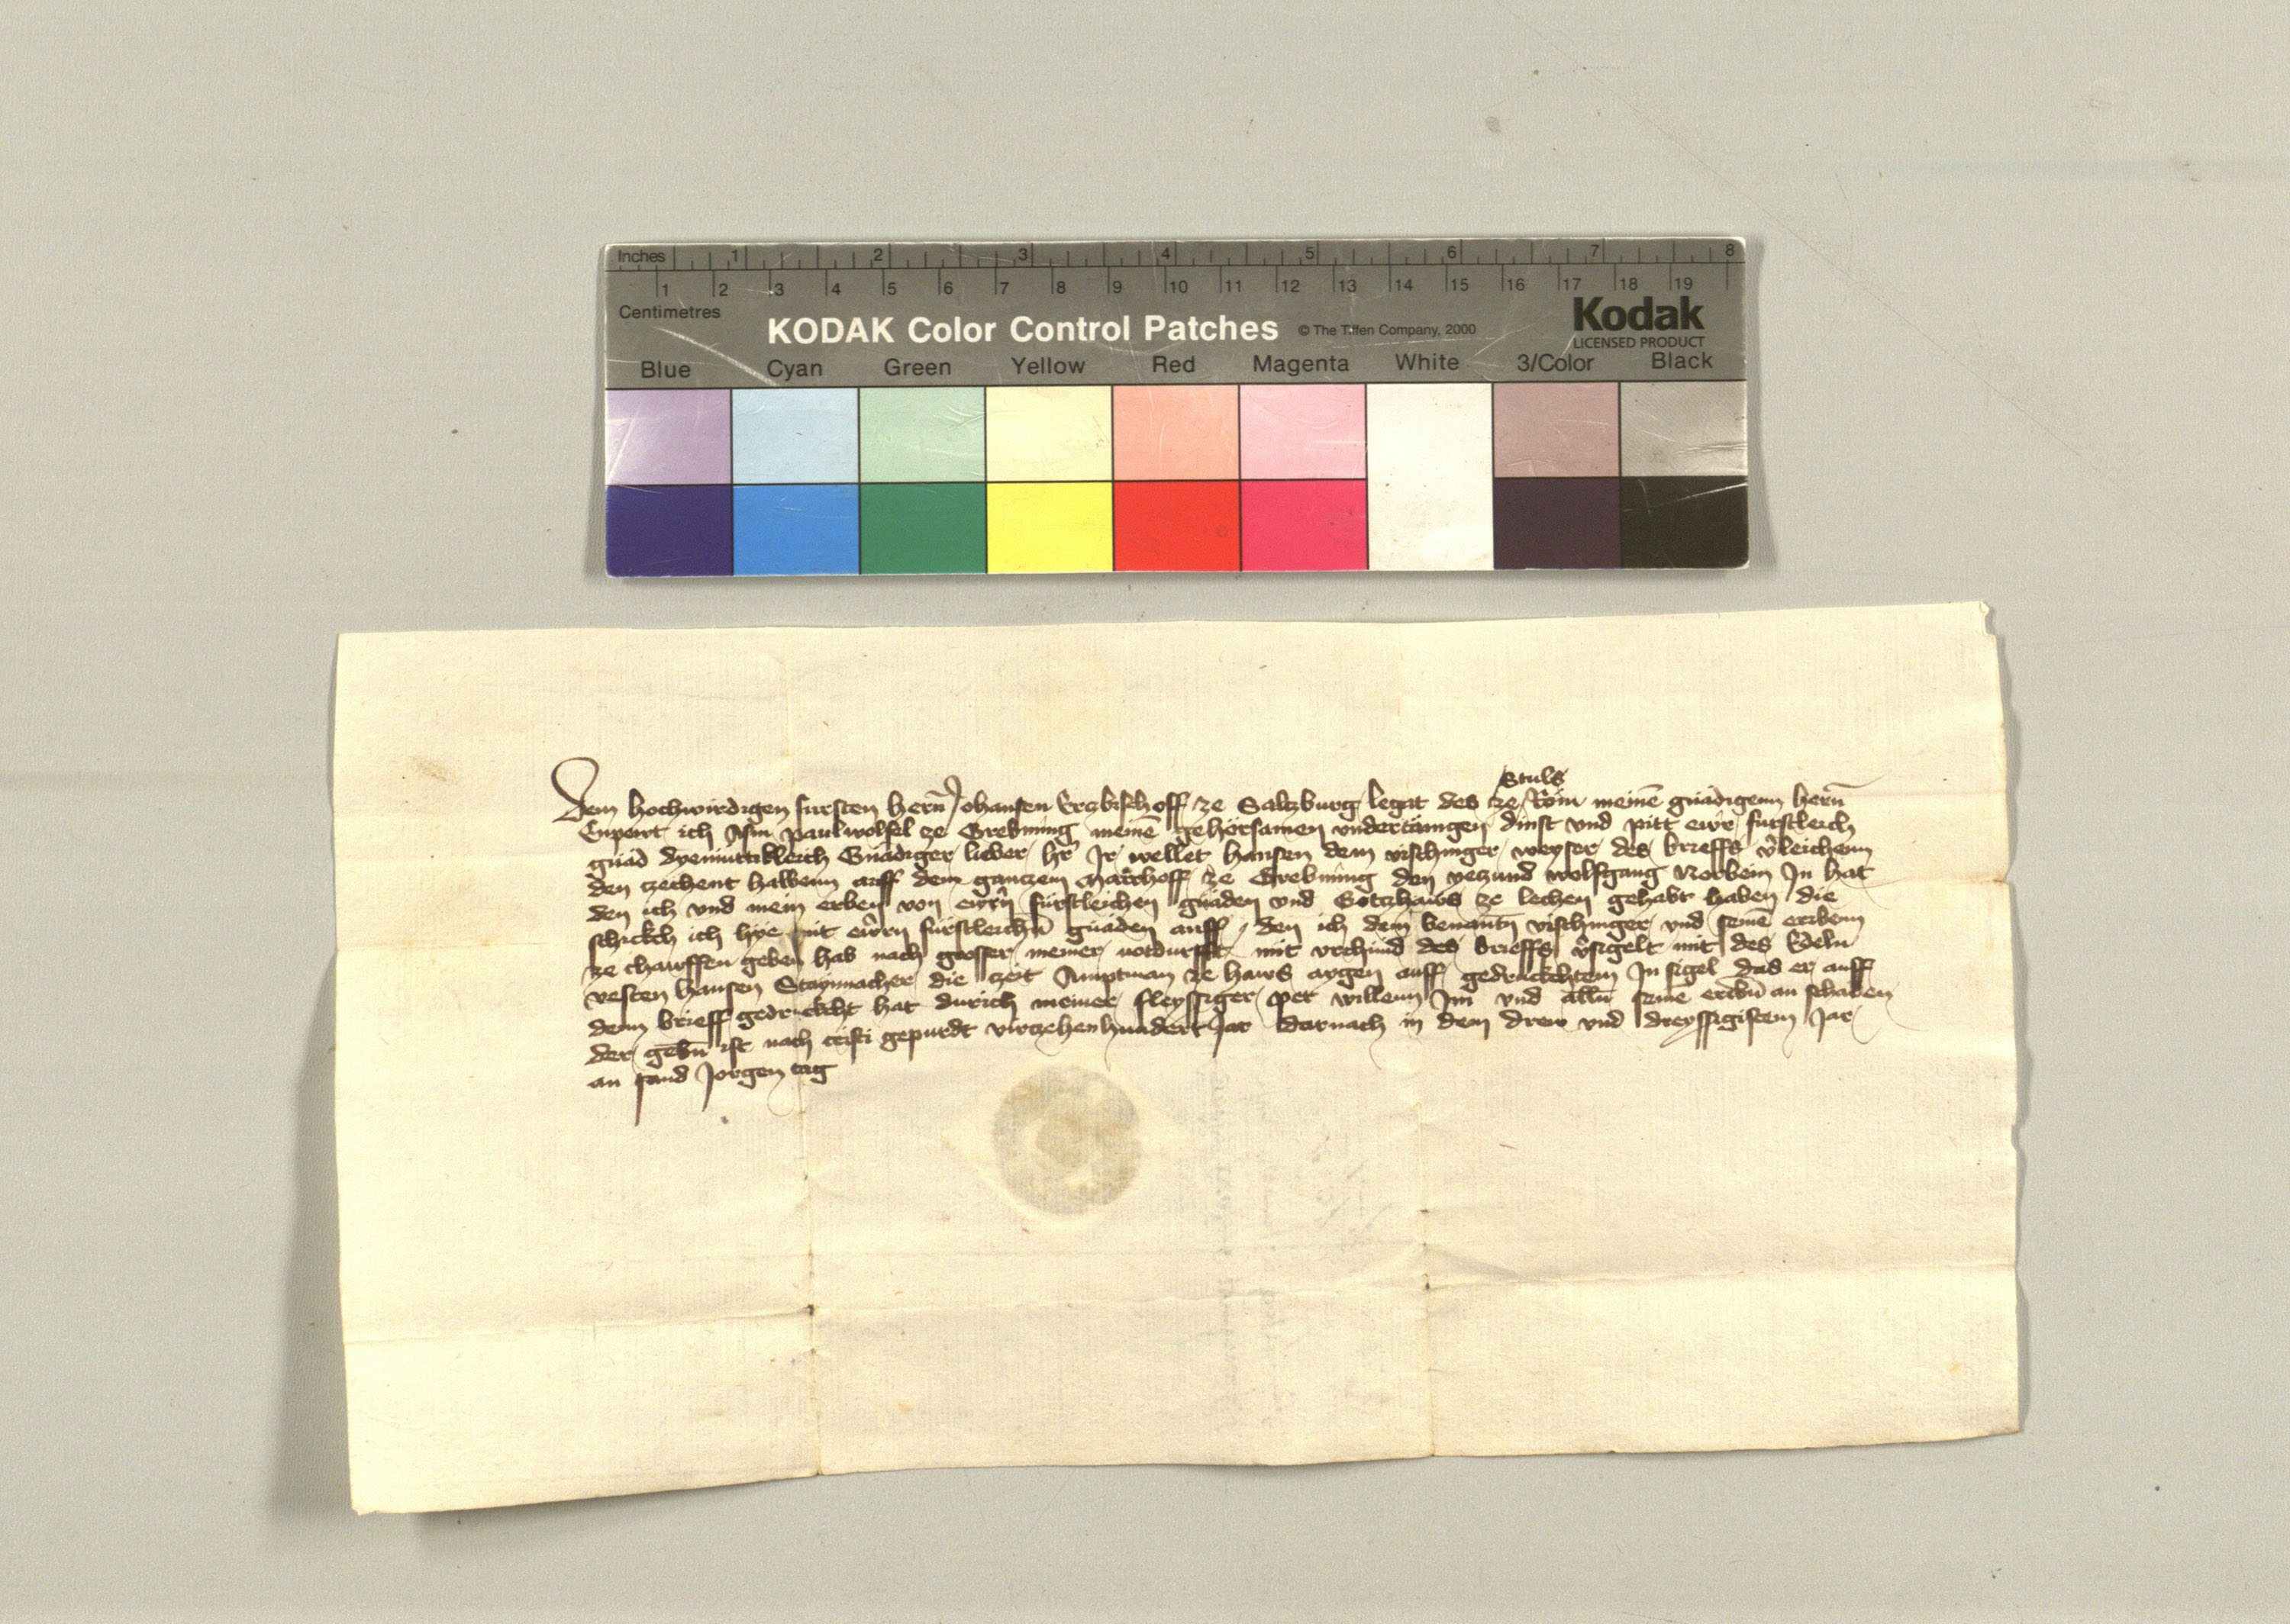 Inches 1 2 3 4 5 6 7 8
1 2 3 4 5 6 7 8 9 10 11 12 13 14 15 16 17 18 19
Centimetres
KODAK Color Control Patches © The Tiffen Company, 2000 Kodak
LICENSED PRODUCT
Blue Cyan Green Yellow Red Magenta White 3/Color Black
Stuls
Dem hochwirdigen fursten hern̄ Johansen Erczbischoff ze Salczburg legat des ze Röm meinē gnädigenn hern̄
Enpewt ich Paul wolfel ze Grebming meinē gehörsamen vndertänigen dinst vnd pitt ewr fürstleich
gnad dyemüttikleich Gnädiger lieber hr̄ Jr wellet hansen dem vischinger weyser des brieffs v̄leichenn
den zechent halbenn auff dem ganczem Marchoff ze Grebming den yeczund wolfgang Norbein Jn hat
den ich vnd mein erben von ewrn̄ fürstleichen gnaden vnd Gotzhaws ze lechen gehabt haben die
schickch ich hye mit ewrn fürstleichn̄ gnäden auff den ich dem benantn̄ vischinger vnd seinē eribenn
ze chauffen geben hab nach grosser meiner notdurfft mit vrchund des brieffs v̄sigelt mit des Edeln
vesten hansen Staynnacher die zeit Amptman ze haws aygen auff gedrukchtem Jn sigel das er auff
denn brieff gedrukcht hat durich meiner fleyssiger pet willenn Jm vnd alln̄ seinē eribn̄ an schaden
der gebn̄ ist nach cristi gepurdt virczehenhundert Jar darnach in dem drew vnd dreyssigistem Jar
an sand Jorgen tag